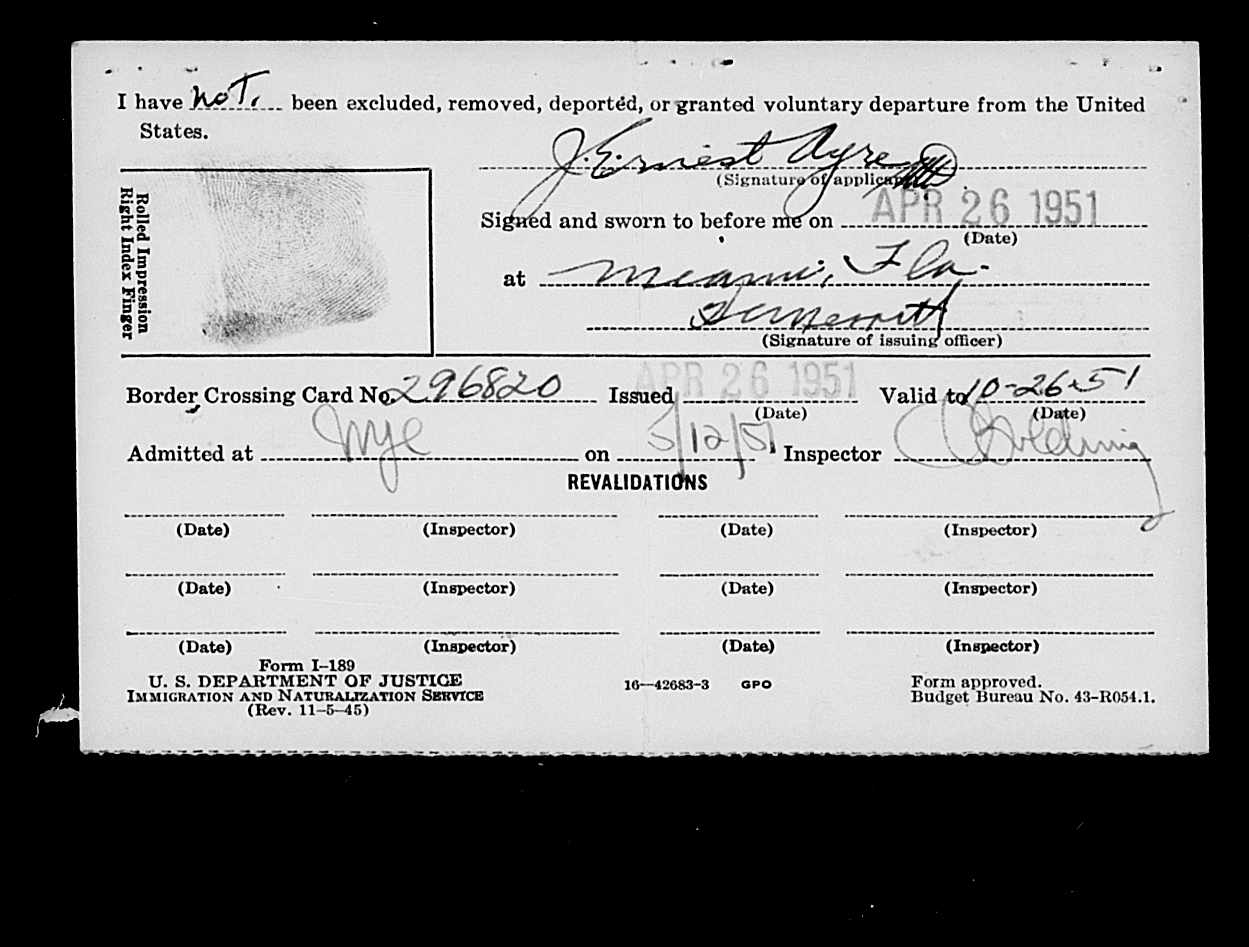 I have not. been excluded, removed, deported, or granted voluntary departure from the United
States.
J. Ernest Ayre
(Signature of applicant)
Rolled Impression
Right Index Finger
Signed and sworn to before me on APR 26 1951
(Date)
at Miami, Fla.
(Signature of issuing officer)
Border Crossing Card No. 296820 Issued APR 26 1951 Valid to 10-26-51
(Date) (Date)
Admitted at on 5/12/51 Inspector
REVALIDATIONS
(Date) (Inspector) (Date) (Inspector)
(Date) (Inspector) (Date) (Inspector)
(Date) (Inspector) (Date) (Inspector)
Form I-189
U. S. DEPARTMENT OF JUSTICE
IMMIGRATION AND NATURALIZATION SERVICE
(Rev. 11-5-45)
16—42683-3 GPO
Form approved.
Budget Bureau No. 43-R054.1.